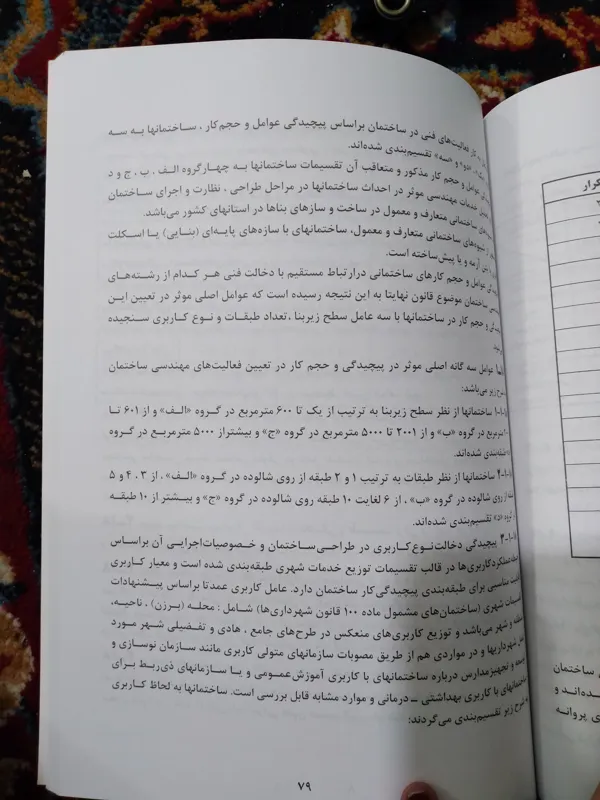 فعالیت‌های فنی در ساختمان براساس پیچیدگی عوامل و حجم کار ، ساختمانها به سه
«دو» و «سه» تقسیم‌بندی شده‌اند.
عوامل و حجم کار مذکور و متعاقب آن تقسیمات ساختمانها به چهارگروه الف ، ب ، ج و د
خدمات مهندسی موثر در احداث ساختمانها در مراحل طراحی ، نظارت و اجرای ساختمان
ساختمانی متعارف و معمول در ساخت و سازهای بناها در استانهای کشور می‌باشد.
شیوه‌های ساختمانی متعارف و معمول، ساختمانهای با سازه‌های پایه‌ای (بنایی) یا اسکلت
بتن آرمه و یا پیش‌ساخته است.
عوامل و حجم کارهای ساختمانی درارتباط مستقیم با دخالت فنی هر کدام از رشته‌های
ساختمان موضوع قانون نهایتا به این نتیجه رسیده است که عوامل اصلی موثر در تعیین این
و حجم کار در ساختمانها با سه عامل سطح زیربنا ،تعداد طبقات و نوع کاربری سنجیده
عوامل سه گانه اصلی موثر در پیچیدگی و حجم کار در تعیین فعالیت‌های مهندسی ساختمان
شرح زیر می‌باشد:
۱-۱- ساختمانها از نظر سطح زیربنا به ترتیب از یک تا ۶۰۰ مترمربع در گروه «الف» و از ۶۰۱ تا
مترمربع در گروه «ب» و از ۲۰۰۱ تا ۵۰۰۰ مترمربع در گروه «ج» و بیشتراز ۵۰۰۰ مترمربع در گروه
شده‌اند.
۲- ساختمانها از نظر طبقات به ترتیب ۱ و ۲ طبقه از روی شالوده در گروه «الف» ، از ۳ ، ۴ و ۵
از روی شالوده در گروه «ب» ، از ۶ لغایت ۱۰ طبقه روی شالوده در گروه «ج» و بیشتر از ۱۰ طبقه
گروه «د» تقسیم‌بندی شده‌اند.
۳- پیچیدگی دخالت‌نوع‌کاربری در طراحی‌ساختمان و خصوصیات‌اجرایی آن براساس
عملکردکاربری‌ها در قالب تقسیمات توزیع خدمات شهری طبقه‌بندی شده است و معیار کاربری
مناسبی برای طبقه‌بندی پیچیدگی‌کار ساختمان دارد. عامل کاربری عمدتا براساس پیشنهادات
شهری (ساختمان‌های مشمول ماده ۱۰۰ قانون شهرداری‌ها) شامل : محله (برزن) ، ناحیه،
و شهر می‌باشد و توزیع کاربری‌های منعکس در طرح‌های جامع ، هادی و تفضیلی شهر مورد
شهرداریها و در مواردی هم از طریق مصوبات سازمانهای متولی کاربری مانند سازمان نوسازی و
و تجهیزمدارس درباره ساختمانهای با کاربری آموزش‌عمومی و یا سازمانهای ذی‌ربط برای
ساختمانهای با کاربری بهداشتی – درمانی و موارد مشابه قابل بررسی است. ساختمانها به لحاظ کاربری
شرح زیر تقسیم‌بندی می‌گردند:
۷۹
ساختمان
پروانه